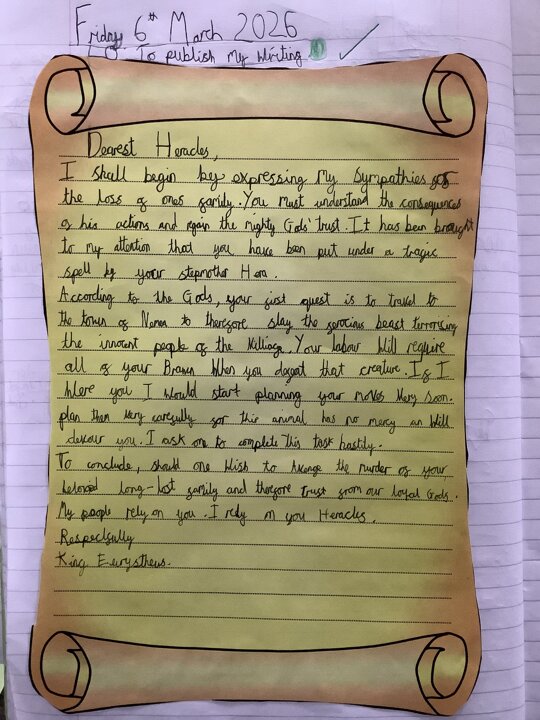 Friday 6th March 2026
L.O. To publish my writing.
Dearest Heracles,
I shall begin by expressing my sympathies for
the loss of ones family. You must understand the consequences
of his actions and regain the mighty Gods' trust. It has been brought
to my attention that you have been put under a tragic
spell by your stepmother Hera.
According to the Gods, your first quest is to travel to
the town of Nemea to therefore slay the ferocious beast terrorising
the innocent people of the village. Your labour will require
all of your Brawn when you defeat that creature. If I
where you I would start planning your moves very soon.
plan then very carefully for this animal has no mercy an will
devour you. I ask one to complete this task hastily.
To conclude, should one wish to avenge the murder of your
beloved long-lost family and therfore trust from our loyal Gods.
My people rely on you. I rely on you Heracles.
Respectfully
King Eurystheus.